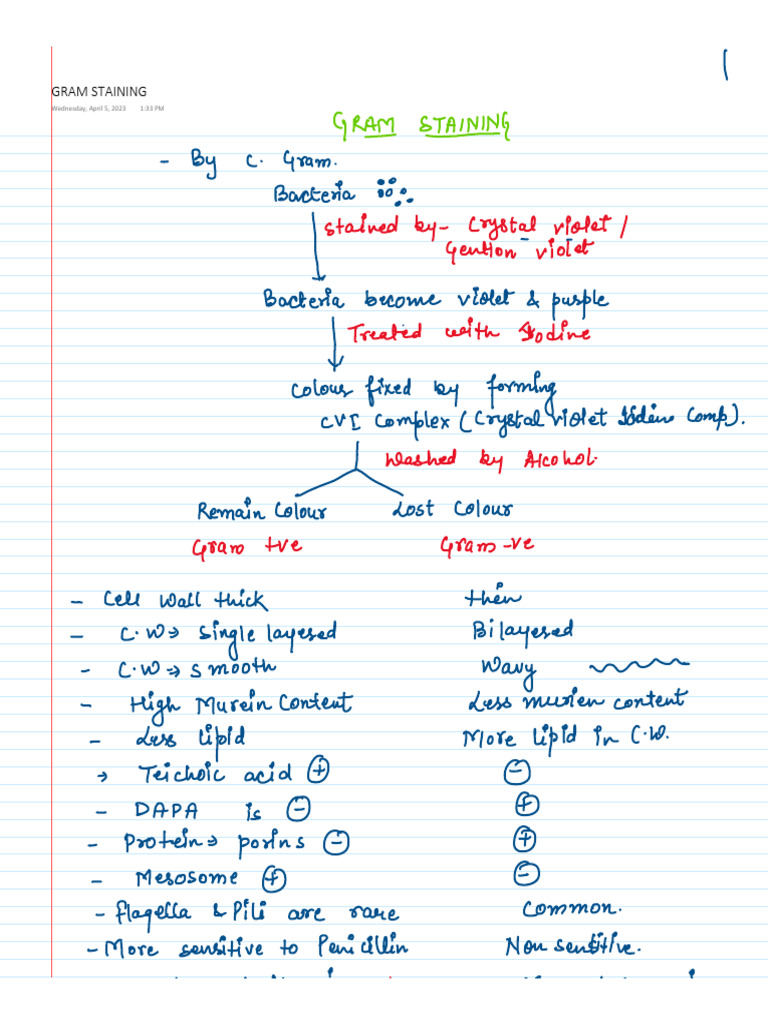 1
GRAM STAINING
Wednesday, April 5, 2023 1:33 PM
GRAM STAINING
- By C. Gram.
Bacteria
Stained by- Crystal violet /
Gention violet
Bacteria become violet & purple
Treated with Iodine
Colour fixed by forming
CVI Complex (Crystal violet Iodine Comp).
Washed by Alcohol.
Remain Colour Lost Colour
Gram +ve Gram -ve
- Cell Wall thick then
- C.W → Single layered Bilayered
- C.W → Smooth Wavy
- High Murein Content Less murien content
- Less lipid More lipid in C.W.
→ Teichoic acid + -
- DAPA is - +
- Protein → porins - +
- Mesosome + -
- flagella & Pili are rare Common.
- More sensitive to Penicillin Non sensitive.